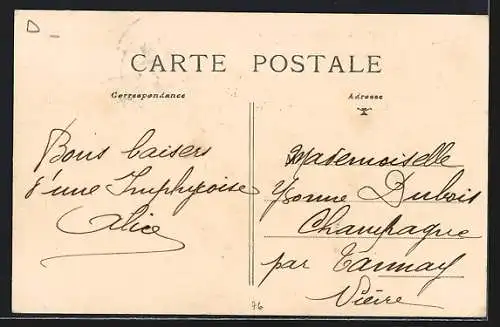 D
CARTE POSTALE
Correspondance
Adresse
Bons baisers
d'une Imphycoise
Alice
Mademoiselle
Yvonne Dubois
Champagne
par Tannay
Nièvre
76